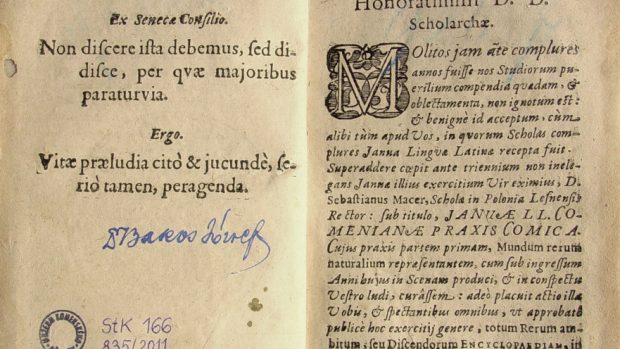 Ex Senecæ Consilio.
Non discere ista debemus, sed di-
disce, per quæ majoribus
paratur via.
Ergo.
Vitæ præludia citò & jucundè, se-
riò tamen, peragenda.
Bakos József
StK 166
835/2011
Scholarchæ.
MOlitos jam ãte complures
annos fuisse nos Studiorum pu-
erilium compendia quædam, &
oblectamenta, non ignotum est:
& benignè id acceptum, cùm
alibi tùm apud Vos, in quorum Scholas com-
plures Janna Linguæ Latinæ recepta fuit.
Superaddere cœpit ante triennium non inele-
gans Januæ illius exercitium Vir eximius, D.
Sebastianus Macer, Scholæ in Polonia Lesnensis
Rector: sub titulo, JANUÆ LL. CO-
MENIANÆ PRAXIS COMICA.
Cujus praxis partem primam, Mundum rerum
naturalium repræsentantem, cum sub ingressum
Anni hujus in Scenam produci, & in conspectu
Vestro ludi, curâssem: adeò placuit actio illa
Vobis, & spectantibus omnibus, ut approbato
publicè hoc exercitij genere, totum Rerum am-
bitum, seu Discendorum ENCYCLOPÆDIAM, in